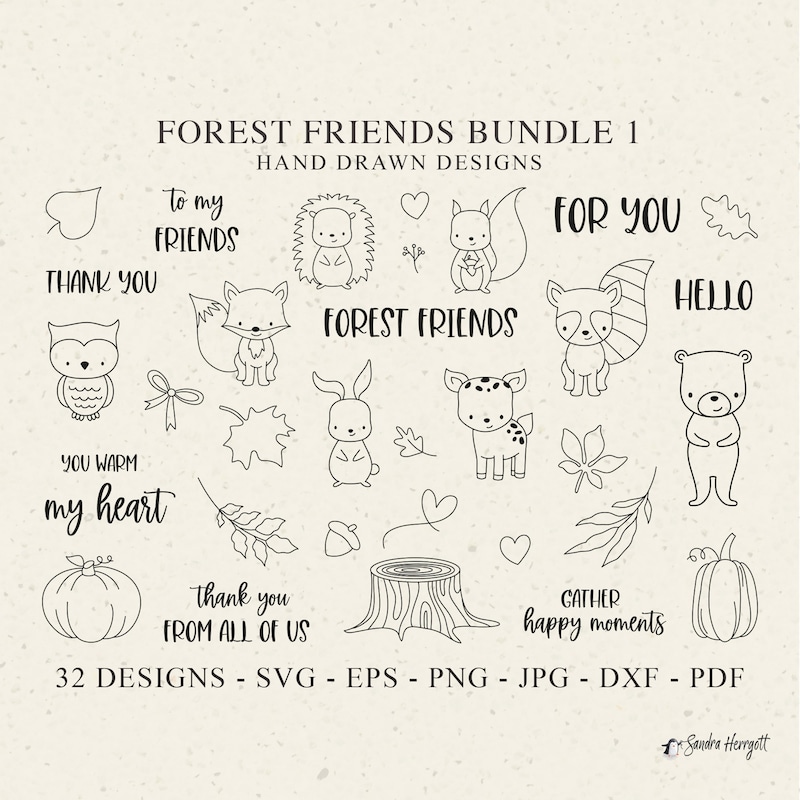 FOREST FRIENDS BUNDLE 1
HAND DRAWN DESIGNS
to my
FRIENDS
FOR YOU
THANK YOU
HELLO
FOREST FRIENDS
YOU WARM
my heart
thank you
FROM ALL OF US
GATHER
happy moments
32 DESIGNS - SVG - EPS - PNG - JPG - DXF - PDF
Sandra Herrgott